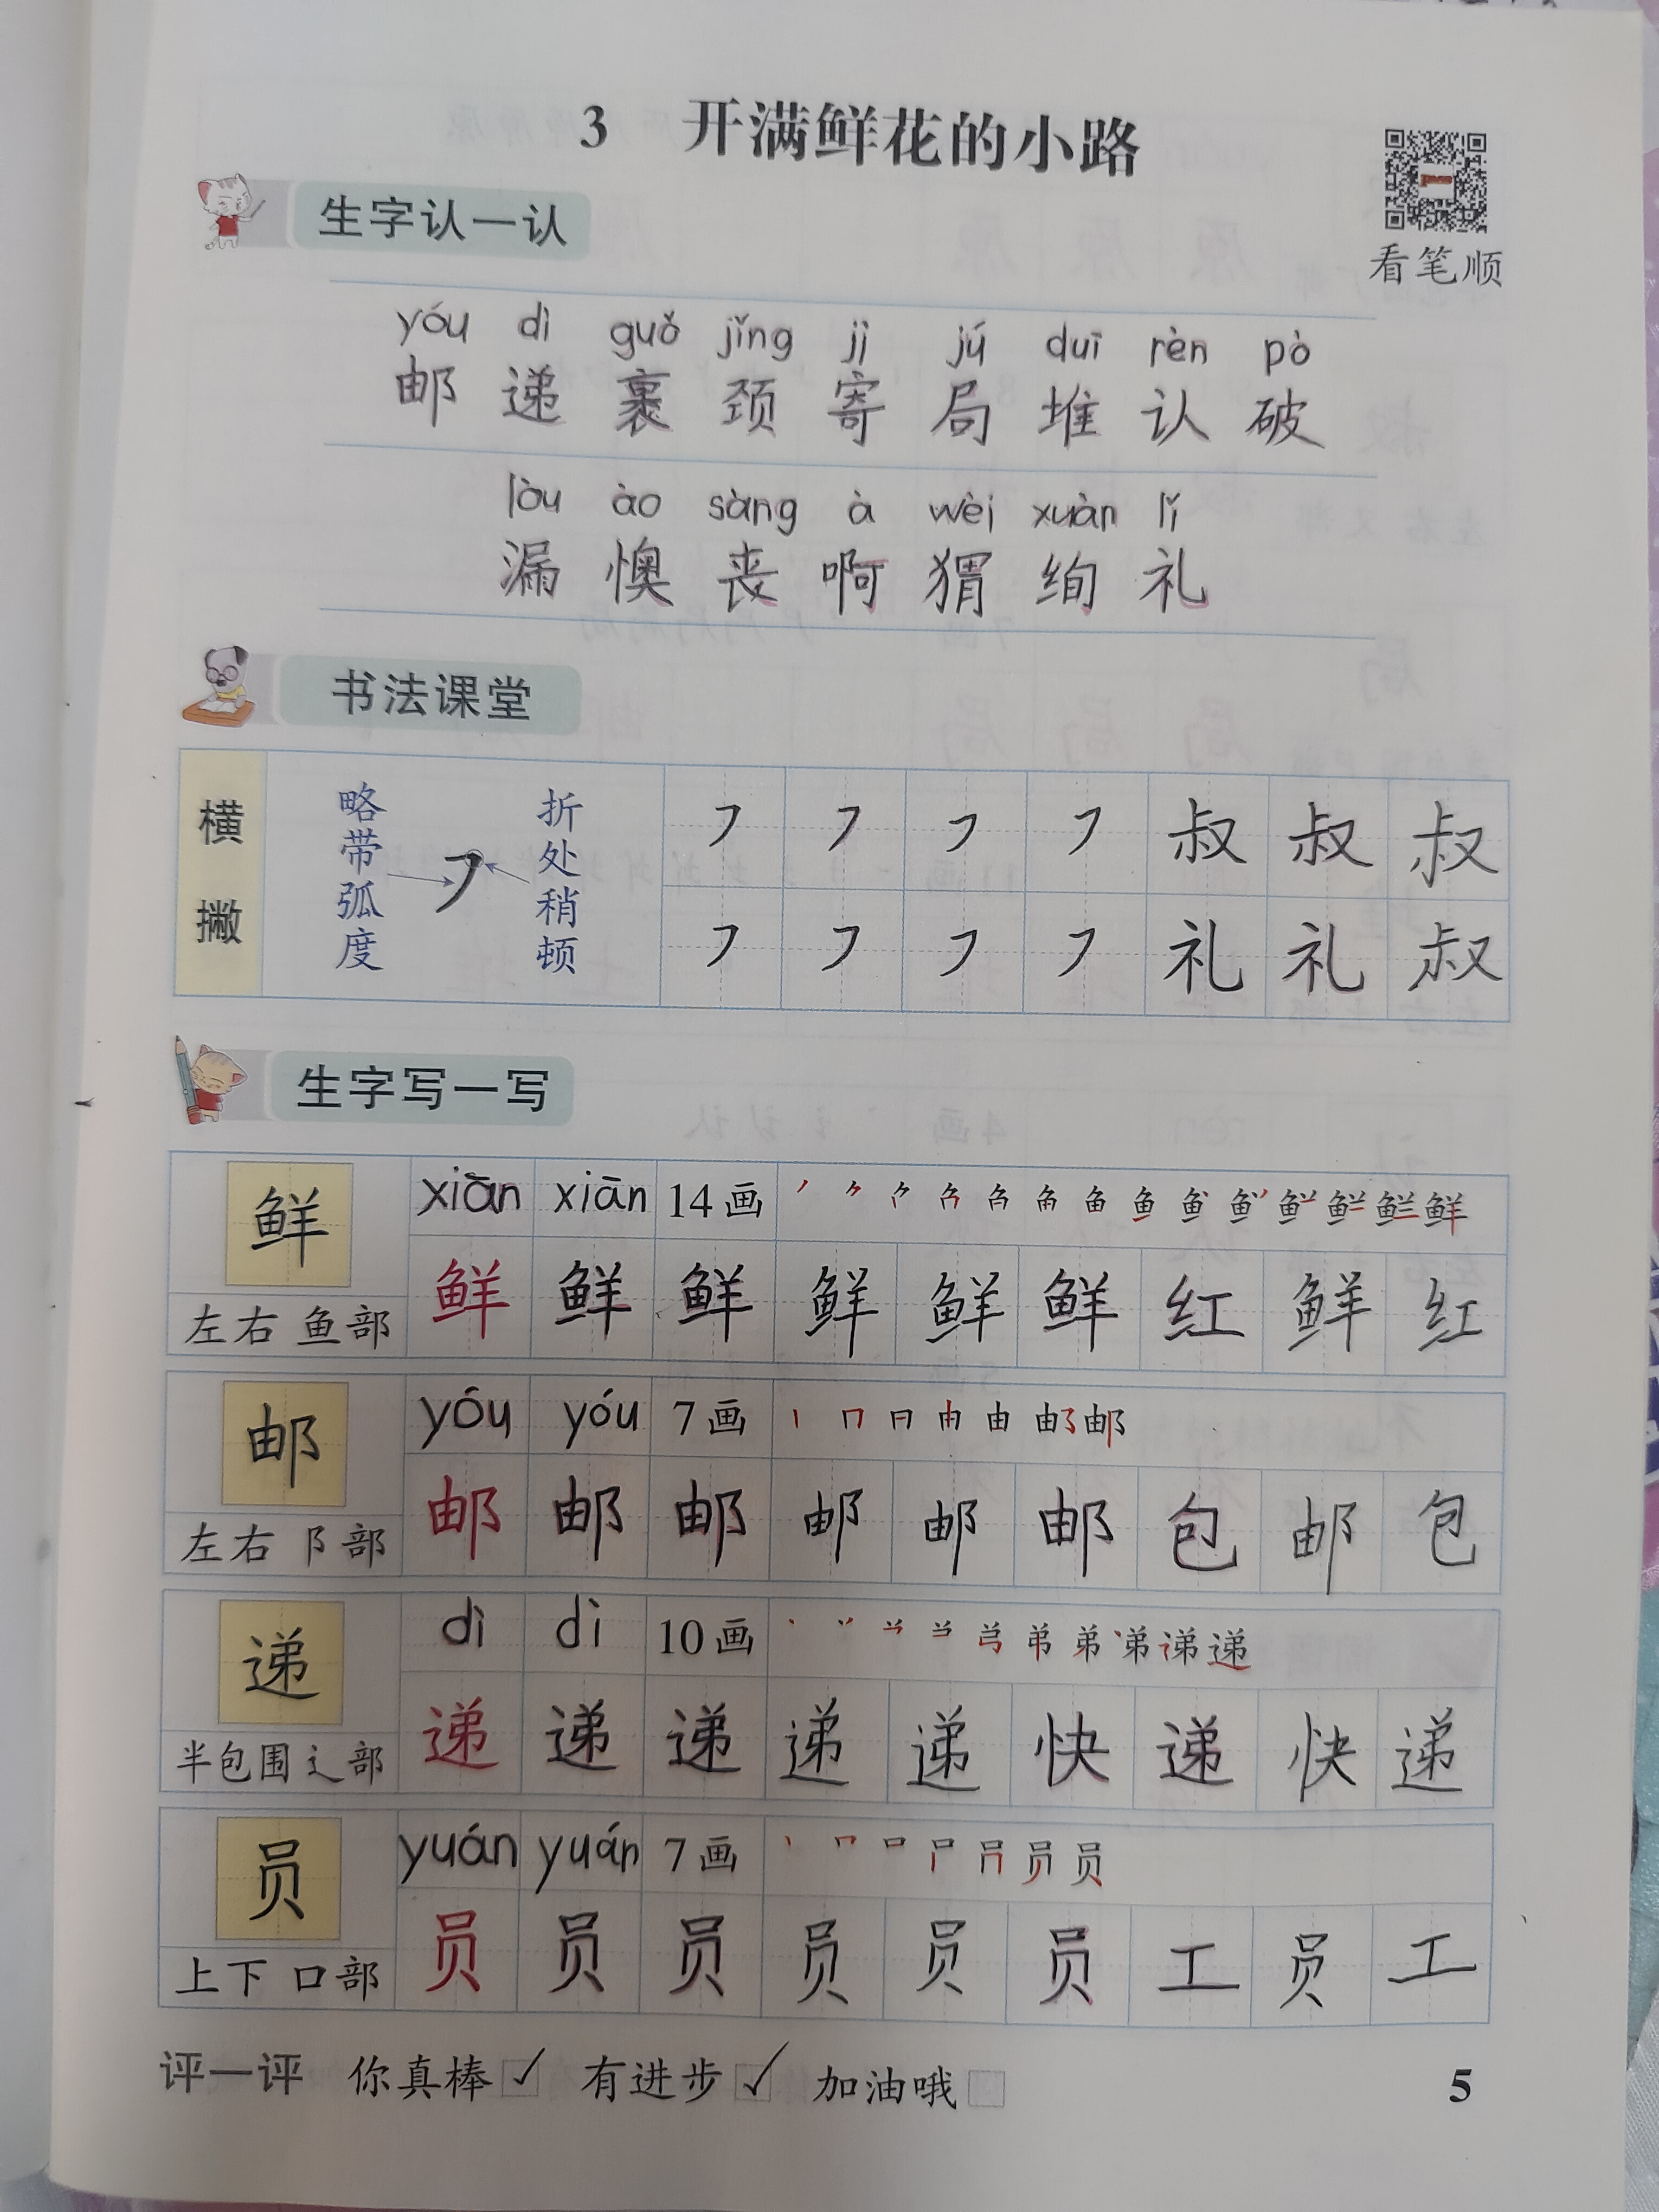 3 开满鲜花的小路
看笔顺
生字认一认
yóu dì guǒ jǐng jì jú duī rèn pò
邮 递 裹 颈 寄 局 堆 认 破
lòu ào sàng à wèi xuàn lǐ
漏 懊 丧 啊 猬 绚 礼
书法课堂
横撇
略带弧度
折处稍顿
㇇ ㇇ ㇇ ㇇ 叔 叔 叔
㇇ ㇇ ㇇ ㇇ 礼 礼 叔
生字写一写
鲜 xiān xiān 14画
左右 鱼部
鲜 鲜 鲜 鲜 鲜 鲜 红 鲜 红
邮 yóu yóu 7画
左右 阝部
邮 邮 邮 邮 邮 邮 包 邮 包
递 dì dì 10画
半包围 辶部
递 递 递 递 递 快 递 快 递
员 yuán yuán 7画
上下 口部
员 员 员 员 员 员 工 员 工
评一评 你真棒 ✓ 有进步 ✓ 加油哦
5